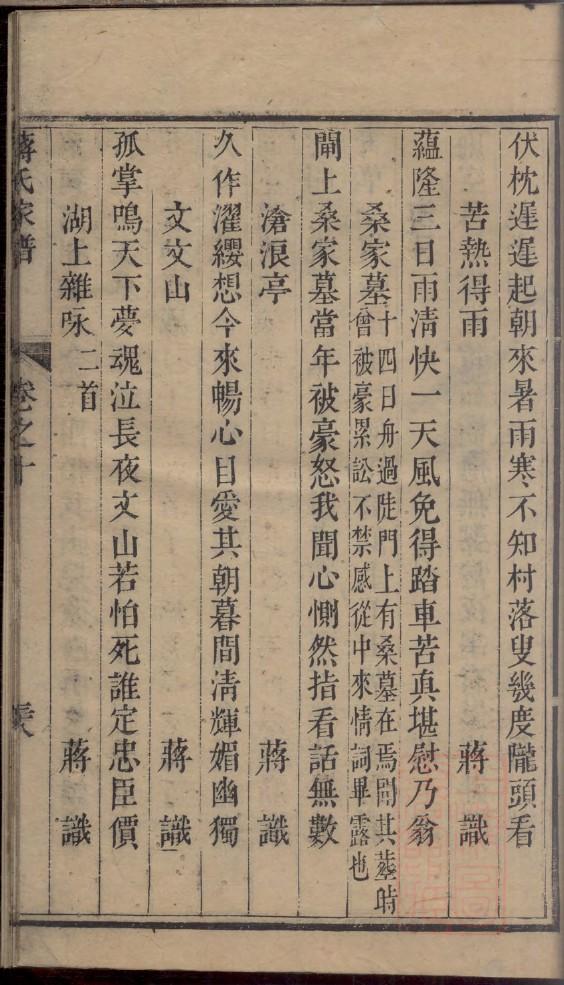 伏枕遲遲起朝來暑雨寒不知村落叟幾度隴頭看
苦熱得雨 蔣識
蘊隆三日雨清快一天風免得踏車苦真堪慰乃翁
桑家墓十四日舟過陡門上有桑墓在焉聞其塟時
曾被豪累訟不禁感從中來情詞畢露也
閘上桑家墓當年被豪怒我聞心惻然指看話無數
滄浪亭 蔣識
久作濯纓想今來暢心目愛其朝暮間清輝媚幽獨
文文山 蔣識
孤掌鳴天下夢魂泣長夜文山若怕死誰定忠臣價
湖上雜咏二首 蔣識
蔣氏家譜 卷之十